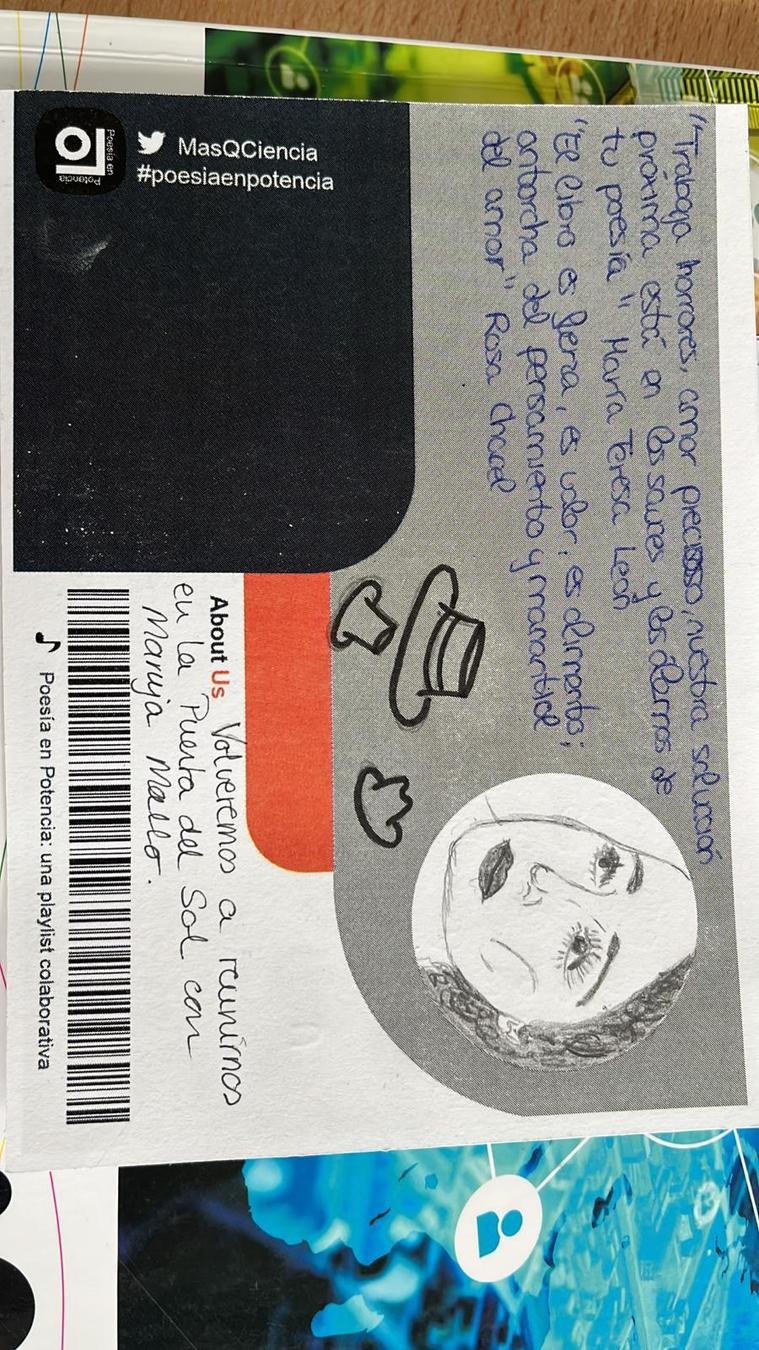 "Trabaja horrores, amor precioso, nuestra solución
próxima está en los sauces y los álamos de
tu poesía" María Teresa León
"El libro es fuerza, es valor, es alimento;
antorcha del pensamiento y manantial
del amor" Rosa Chacel
MasQCiencia
#poesiaenpotencia
Poesía en
Potencia
About Us Volveremos a reunirnos
en la Puerta del Sol con
Maruja Mallo.
Poesía en Potencia: una playlist colaborativa